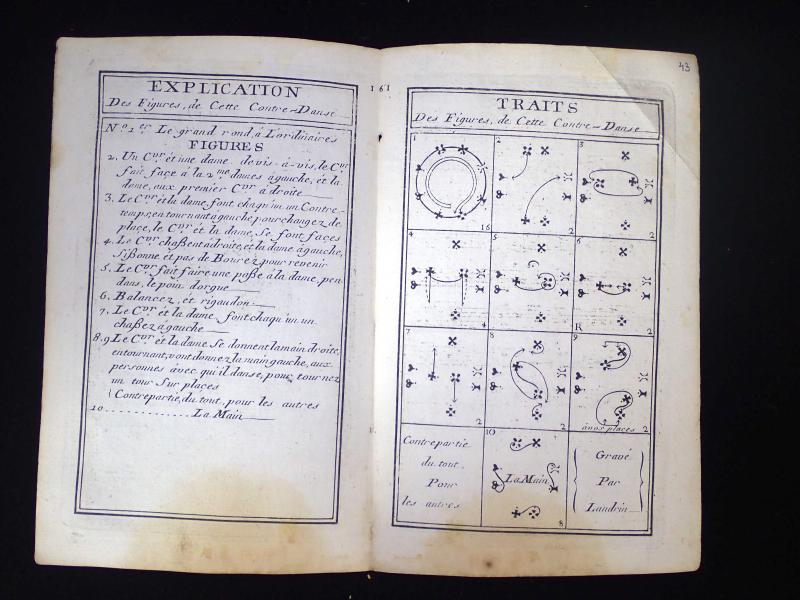 EXPLICATION
Des Figures, de Cette Contre-Danse
No 1er Le grand rond, à L'ordinaires
FIGURES
2. Un Cvr et une dame de vis-à-vis, le Cvr
fait, face à la 2me dames à gauche, et la
dame, aux premier Cvr à droite
3. Le Cvr et la dame font chaqu'un un Contre-
temps, en tournant à gauche, pour changez de
place, le Cvr et la dame, Se font faces
4. Le Cvr chaßent à droite, et la dame à gauche,
Sißonne et pas de Bourez, pour revenir
5. Le Cvr fait faire une paße à la dame, pen
dans, le poin dorgue
6. Balancez, et rigaudon
7. Le Cvr et la dame font chaqu'un un
chaßez à gauche
8.9. Le Cvr et la dame Se donnent la main droite,
en tournant, vont donnez la main gauche, aux
personnes avec qui il danse, pour tournez
un tour Sur places
(Contrepartie, du tout, pour les autres
10 .............. La Main
161
43
TRAITS
Des Figures, de Cette Contre-Danse
1
16
2
2
3
2
4
4
5
2
6
R
2
7
2
8
2
9
à nos places
2
Contrepartie
du tout,
Pour
les autres
10
La Main
8
Gravé
Par
Landrin